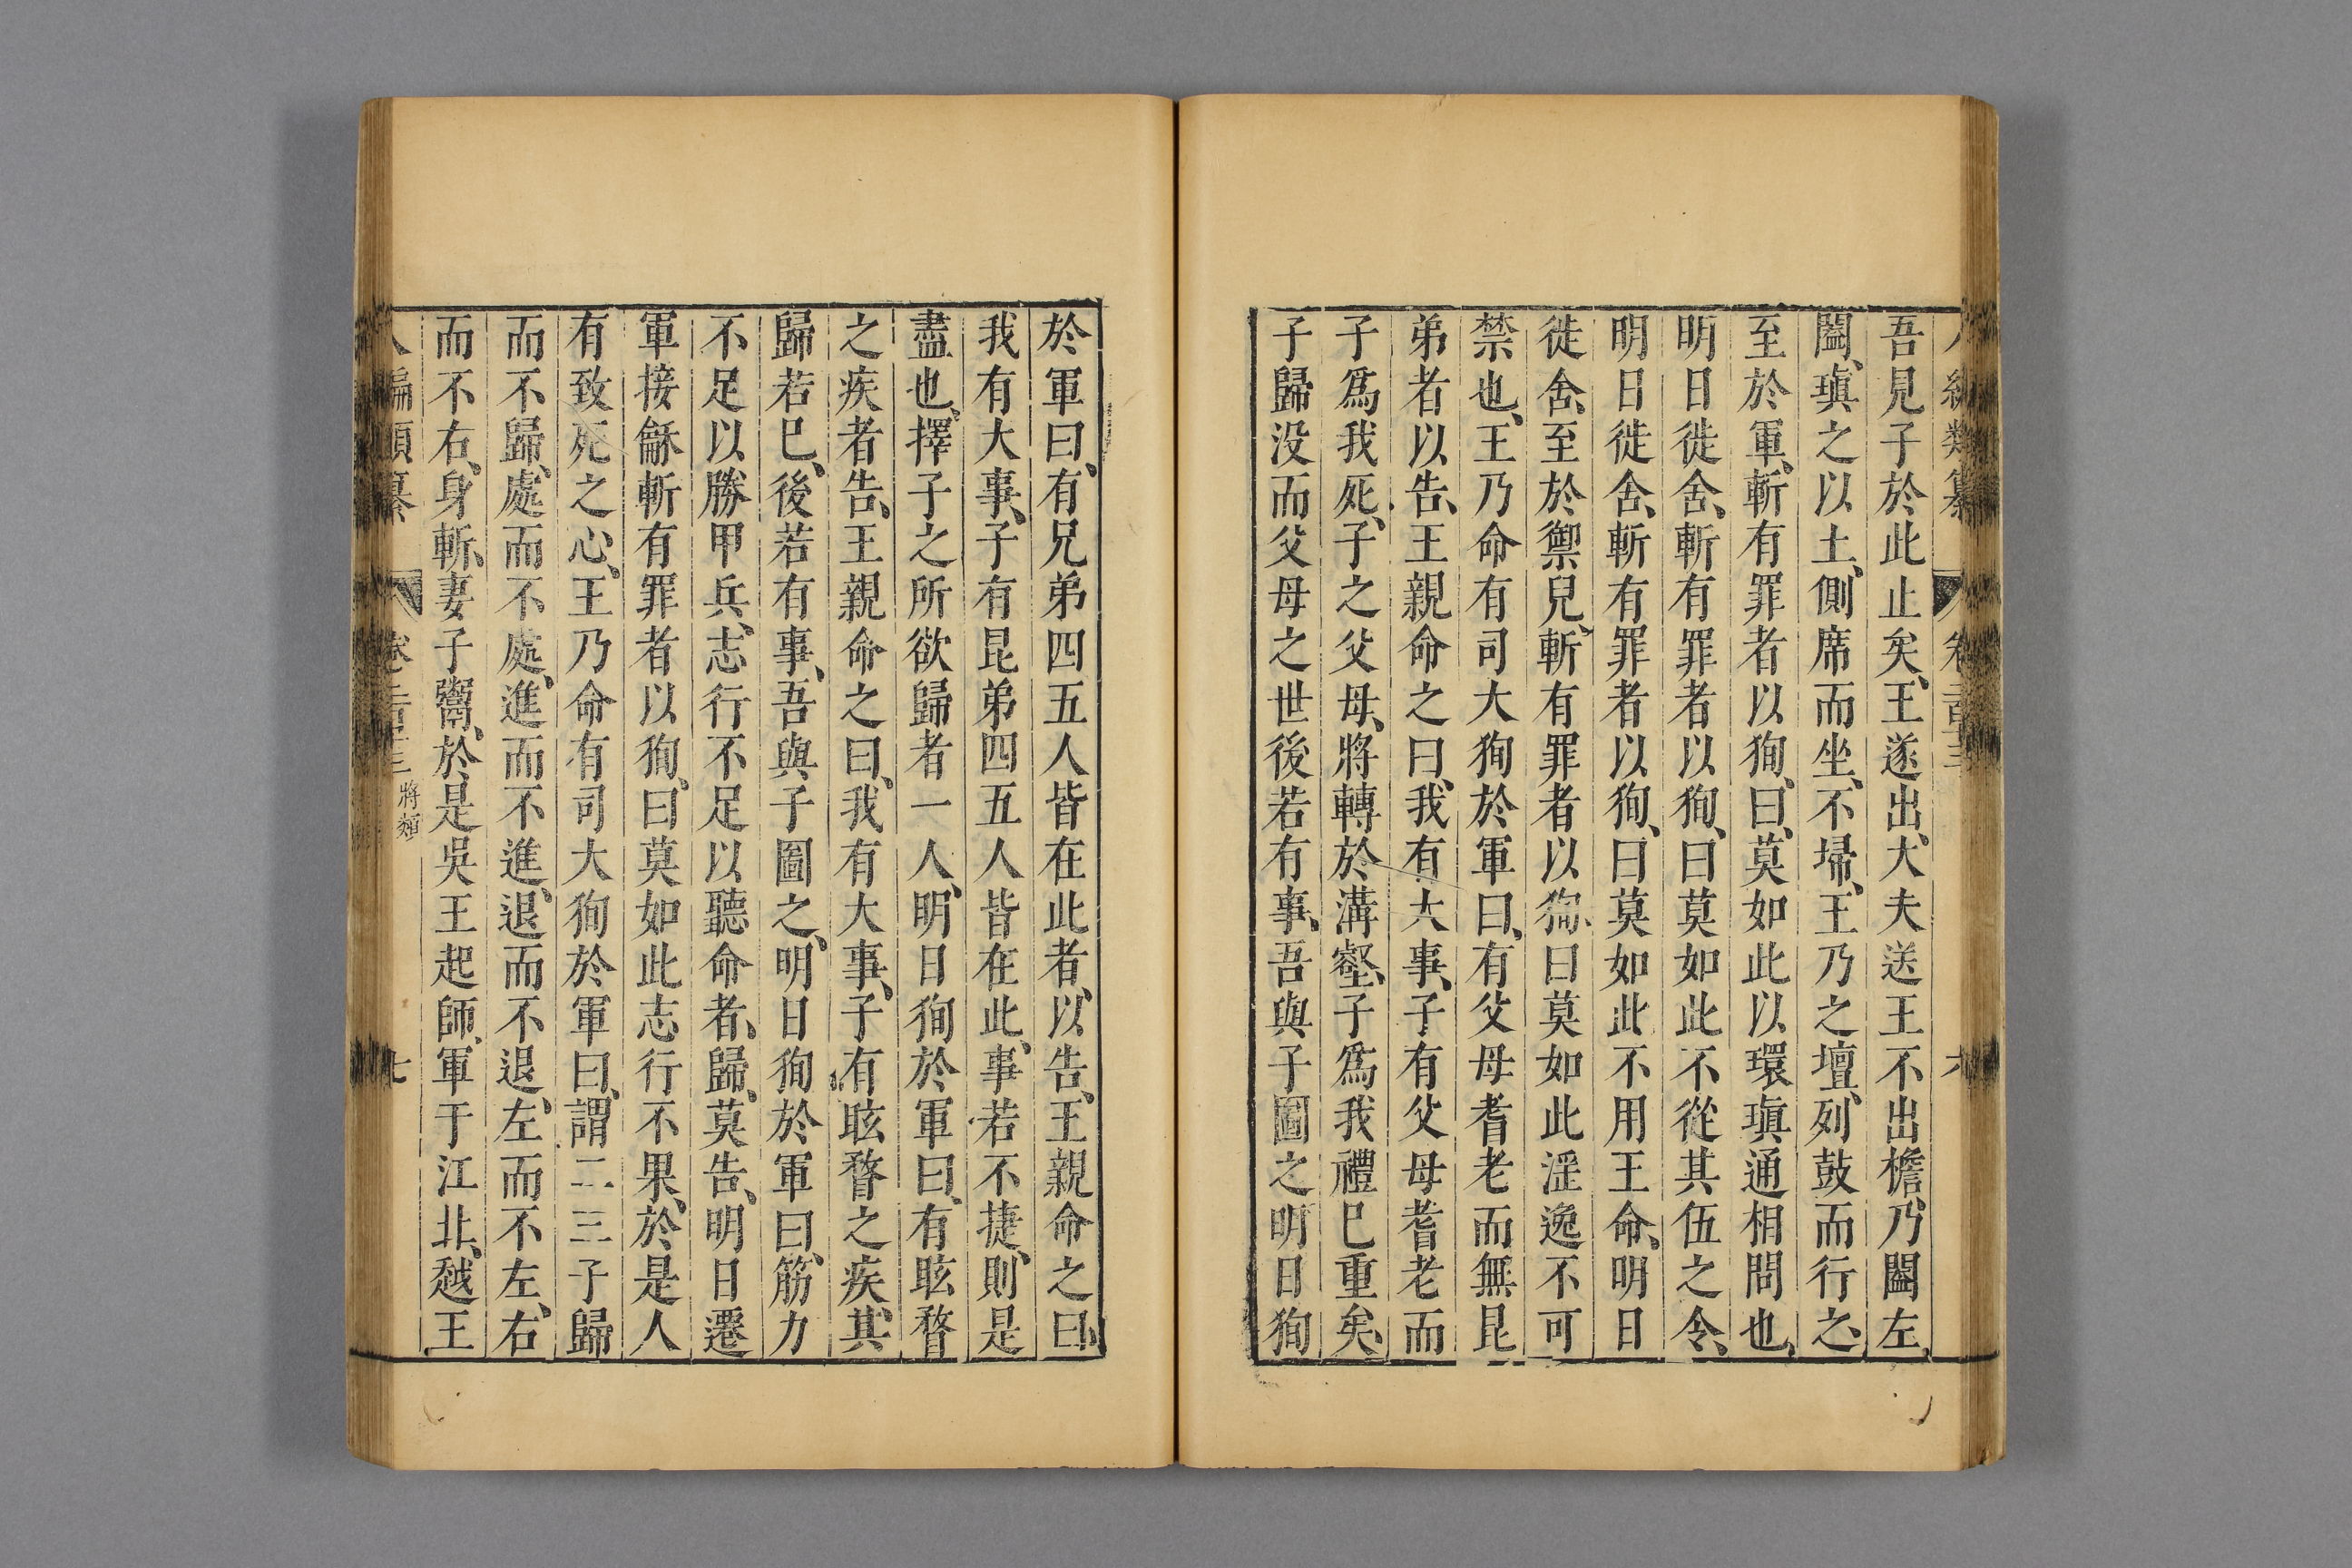 吾見子於此止矣、王遂出、大夫送王不出檐、乃闔左、
闔、瑱之以土、側席而坐、不埽、王乃之壇、列鼓而行之、
至於軍、斬有罪者以狥、曰、莫如此以環瑱通相問也、
明日徙舍、斬有罪者以狥、曰莫如此不從其伍之令、
明日徙舍、斬有罪者以狥、曰莫如此不用王命、明日
徙舍、至於禦兒、斬有罪者以狥、曰莫如此淫逸不可
禁也、王乃命有司大狥於軍曰、有父母耆老而無昆
弟者以告、王親命之曰、我有大事、子有父母耆老而
子爲我死、子之父母、將轉於溝壑、子爲我禮巳重矣、
子歸没而父母之世後若有事、吾與子圖之明日狥
於軍曰、有兄弟四五人皆在此者、以告、王親命之曰、
我有大事、子有昆弟四五人皆在此、事若不捷、則是
盡也、擇子之所欲歸者一人、明日狥於軍曰、有眩瞀
之疾者告、王親命之曰、我有大事、子有眩瞀之疾、其
歸若巳、後若有事、吾與子圖之、明日狥於軍曰、筋力
不足以勝甲兵、志行不足以聽命者、歸、莫告、明日遷
軍接龢斬有罪者以狥、曰莫如此志行不果、於是人
有致死之心、王乃命有司大狥於軍曰、謂二三子歸
而不歸、處而不處、進而不進、退而不退、左而不左、右
而不右、身斬、妻子鬻、於是吳王起師、軍于江北、越王
八編類纂 卷二百十三 將類 七